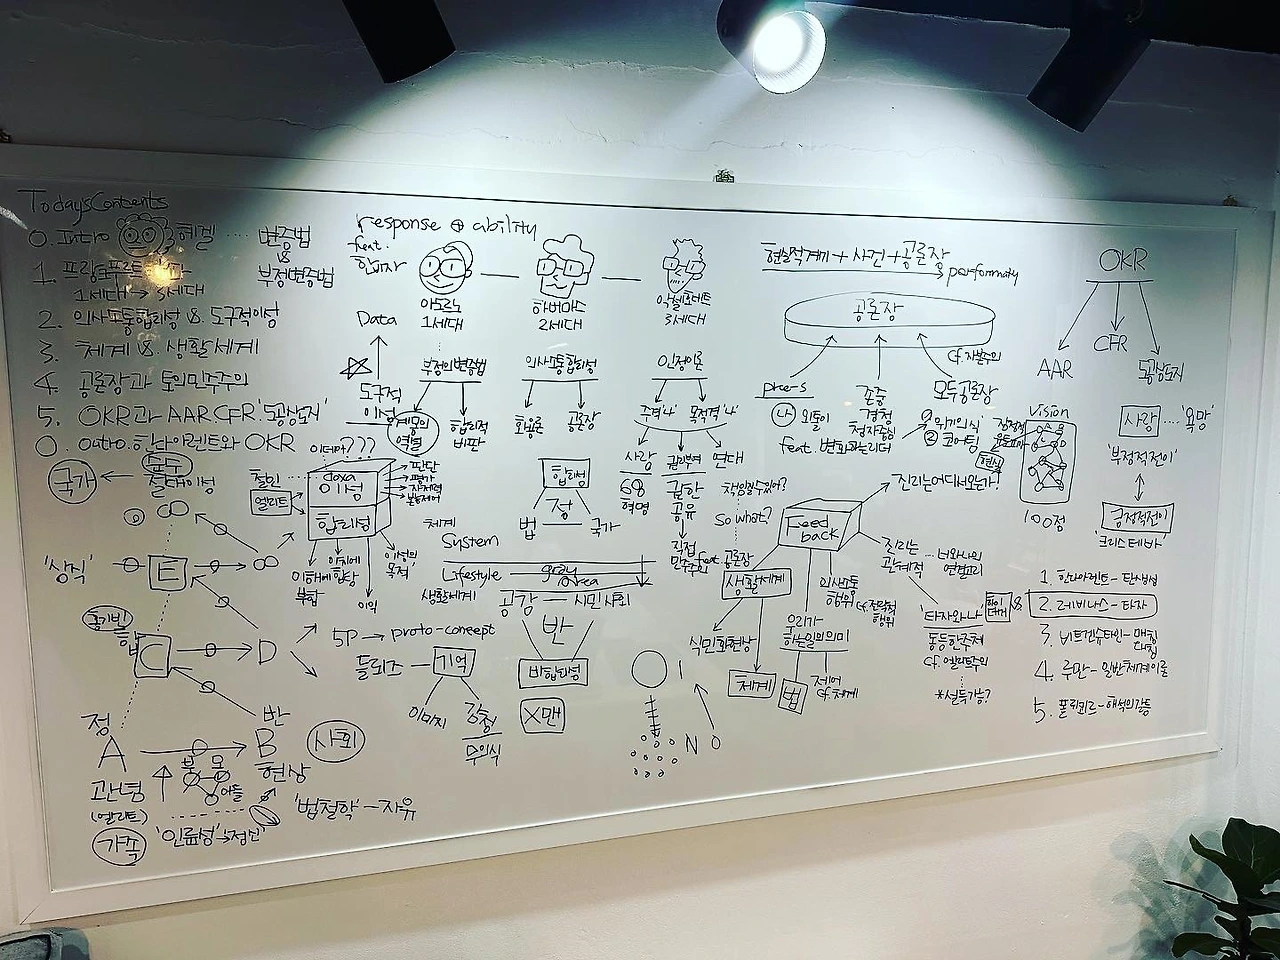 Today's Contents
0. Intro 헤겔 ···· 변증법
&
부정변증법
1. 프랑크푸르트
1세대 → 3세대
2. 의사소통합리성 & 도구적이성
3. 체계 & 생활세계
4. 공론장과 토의민주주의
5. OKR과 AAR.CFR '5공상도지'
0. Outro. 한나아렌트와 OKR
국가
절대이성
'상식'
E
C
D
정
A
반
B
사회
관념
(엘리트)
현상
부
모
아들
가족
'인륜성' → 정신
'법철학' - 자유
response ⊕ ability
feat.
Data
도구적
이성
아도르노
1세대
부정의변증법
계몽의
변증법
합리적
비판
하버마스
2세대
의사소통합리성
화용론
공론장
악셀호네트
3세대
인정이론
주격'나'
목적격'나'
사랑
권리부여
연대
68
혁명
권한
공유
직접
민주주의
이데아???
철인
엘리트
doxa
이성
합리성
판단
평가
이해에 입각
부합
이익
이성의
목적
합리성
정
법
국가
체계
System
Lifestyle
gray
area
생활세계
공감 — 시민사회
반
비합리성
X맨
5P → proto-concept
들뢰즈 — 기억
이미지
감정
무의식
현실적계기 + 사건 + 공론장
공론장
cf. 자본주의
나
외톨이
존중
경청
모두공론장
feat. 변화관리리더
② 코칭
현실
책임질수있어?
So what?
Feed
back
진리는어디서오는가?
진리는
관계적
너와나의
연결고리
feat. 공론장
생활세계
식민화현상
체계
의사소통
행위
cf. 전략적
행위
우리가
하는일의의미
법
제어
cf. 체계
'타자와나'
동등한주체
cf. 엘리트주의
*설득가능?
I
N
0
OKR
AAR
CFR
5공상도지
Vision
100점
사랑 ···· '욕망'
'부정적전이'
긍정적전이
'크리스테바'
1. 한나아렌트 - 탄생성
2. 레비나스 - 타자
3. 비트겐슈타인 -
4. 루만 - 일반체계이론
5. 폴리쾨르 - 해석의갈등